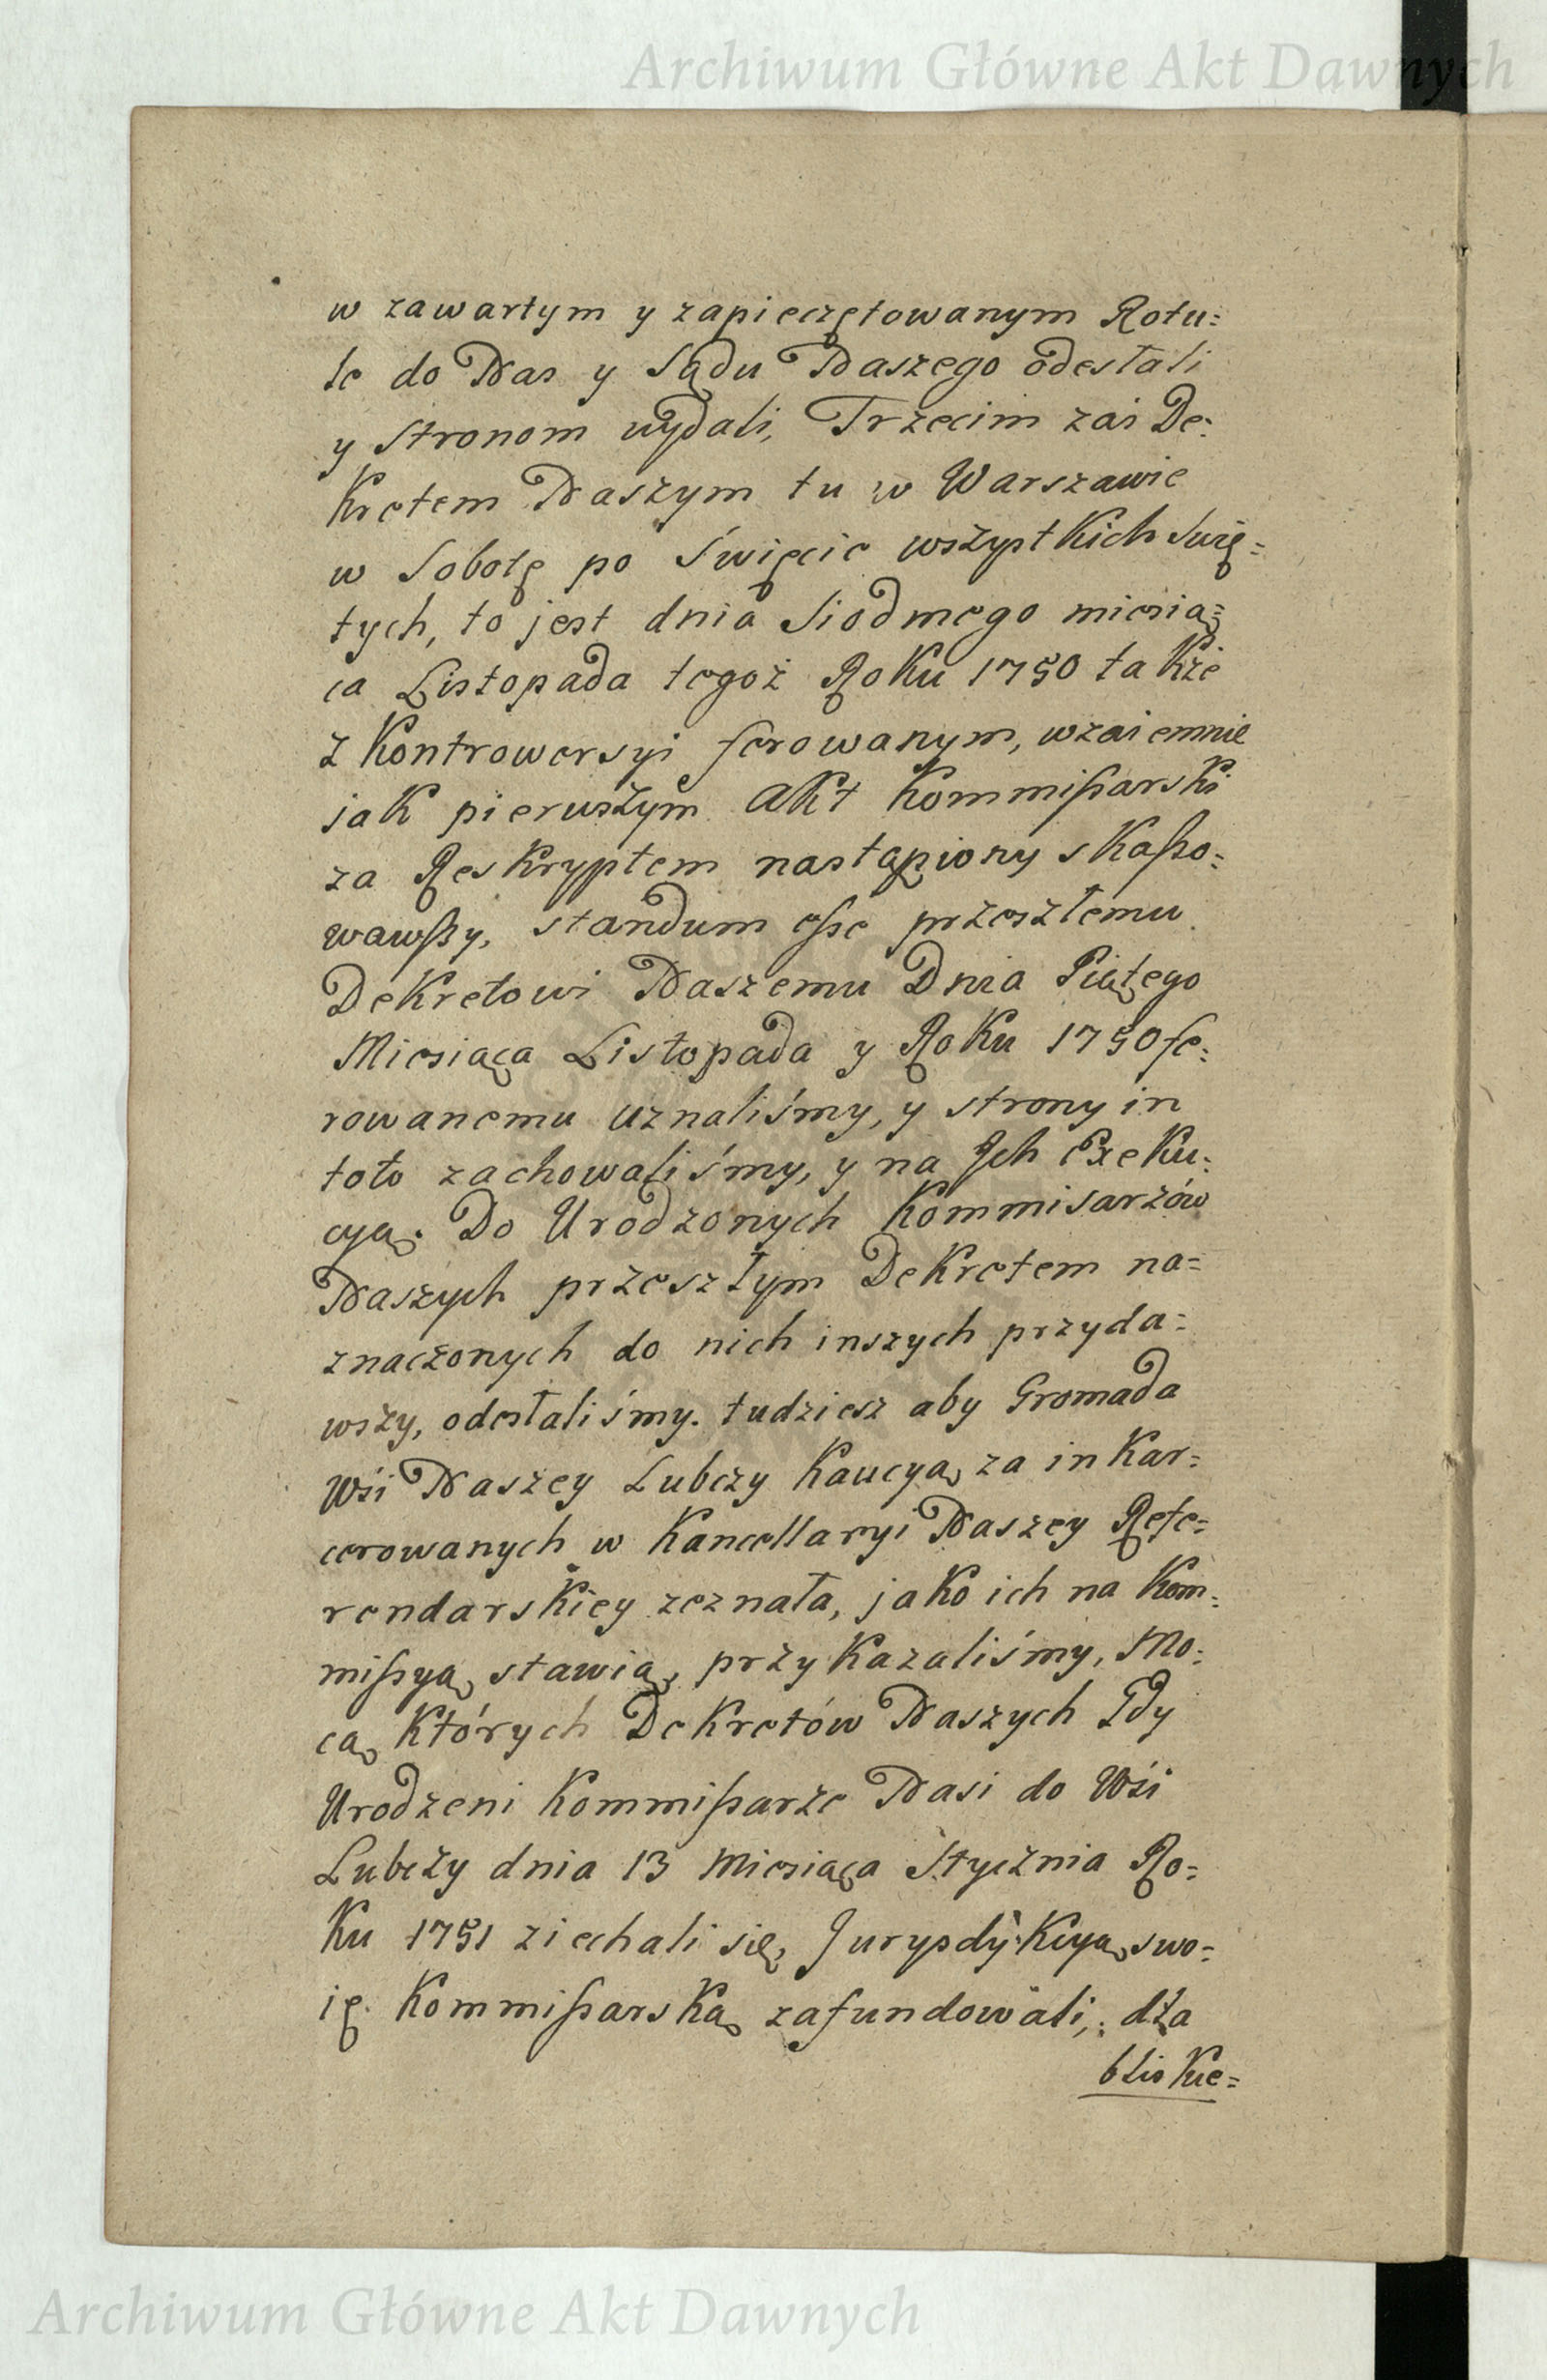 Archiwum Główne Akt Dawnych
w zawartym y zapieczętowanym Rotu=
le do Nas y Sądu Naszego odestali
y Stronom wydali, Trzecim zaś De=
Kretem Naszym tu w Warszawie
w Sobotę po Święcie wszystKich Świę=
tych, to jest dnia Siodmego miesią=
ca Listopada tegoż RoKu 1750 taKże
z Kontrowersyi ferowanym, wzaiemnie
jaK pierwszym AKt Kommißarski
za ResKryptem nastąpiony sKaßo=
wawßy, standum eße przeszłemu
DeKretowi Naszemu Dnia Piątego
Miesiąca Listopada y RoKu 1750 fe=
rowanemu uznaliśmy, y strony in
toto zachowaliśmy, y na Ich ExeKu=
cyą. Do Urodzonych Kommisarzów
Naszych przeszłym DeKretem na=
znaczonych do nich inszych przyda=
wszy, odesłaliśmy. tudziesz aby Gromada
Wśi Naszey Lubczy Kaucyą za inKar=
cerowanych w Kancellaryi Naszey Refe=
rendarsKiey zeznała, jaKo ich na Kom=
mißyą stawią, przyKazaliśmy, Mo=
cą Których DeKretów Naszych Gdy
Urodzeni Kommißarze Nasi do Wśi
Lubczy dnia 13 Miesiąca Stycznia Ro=
Ku 1751 ziechali się, JurysdyKcyą swo=
ię KommißarsKą zafundowali, dla
blisKie=
Archiwum Główne Akt Dawnych